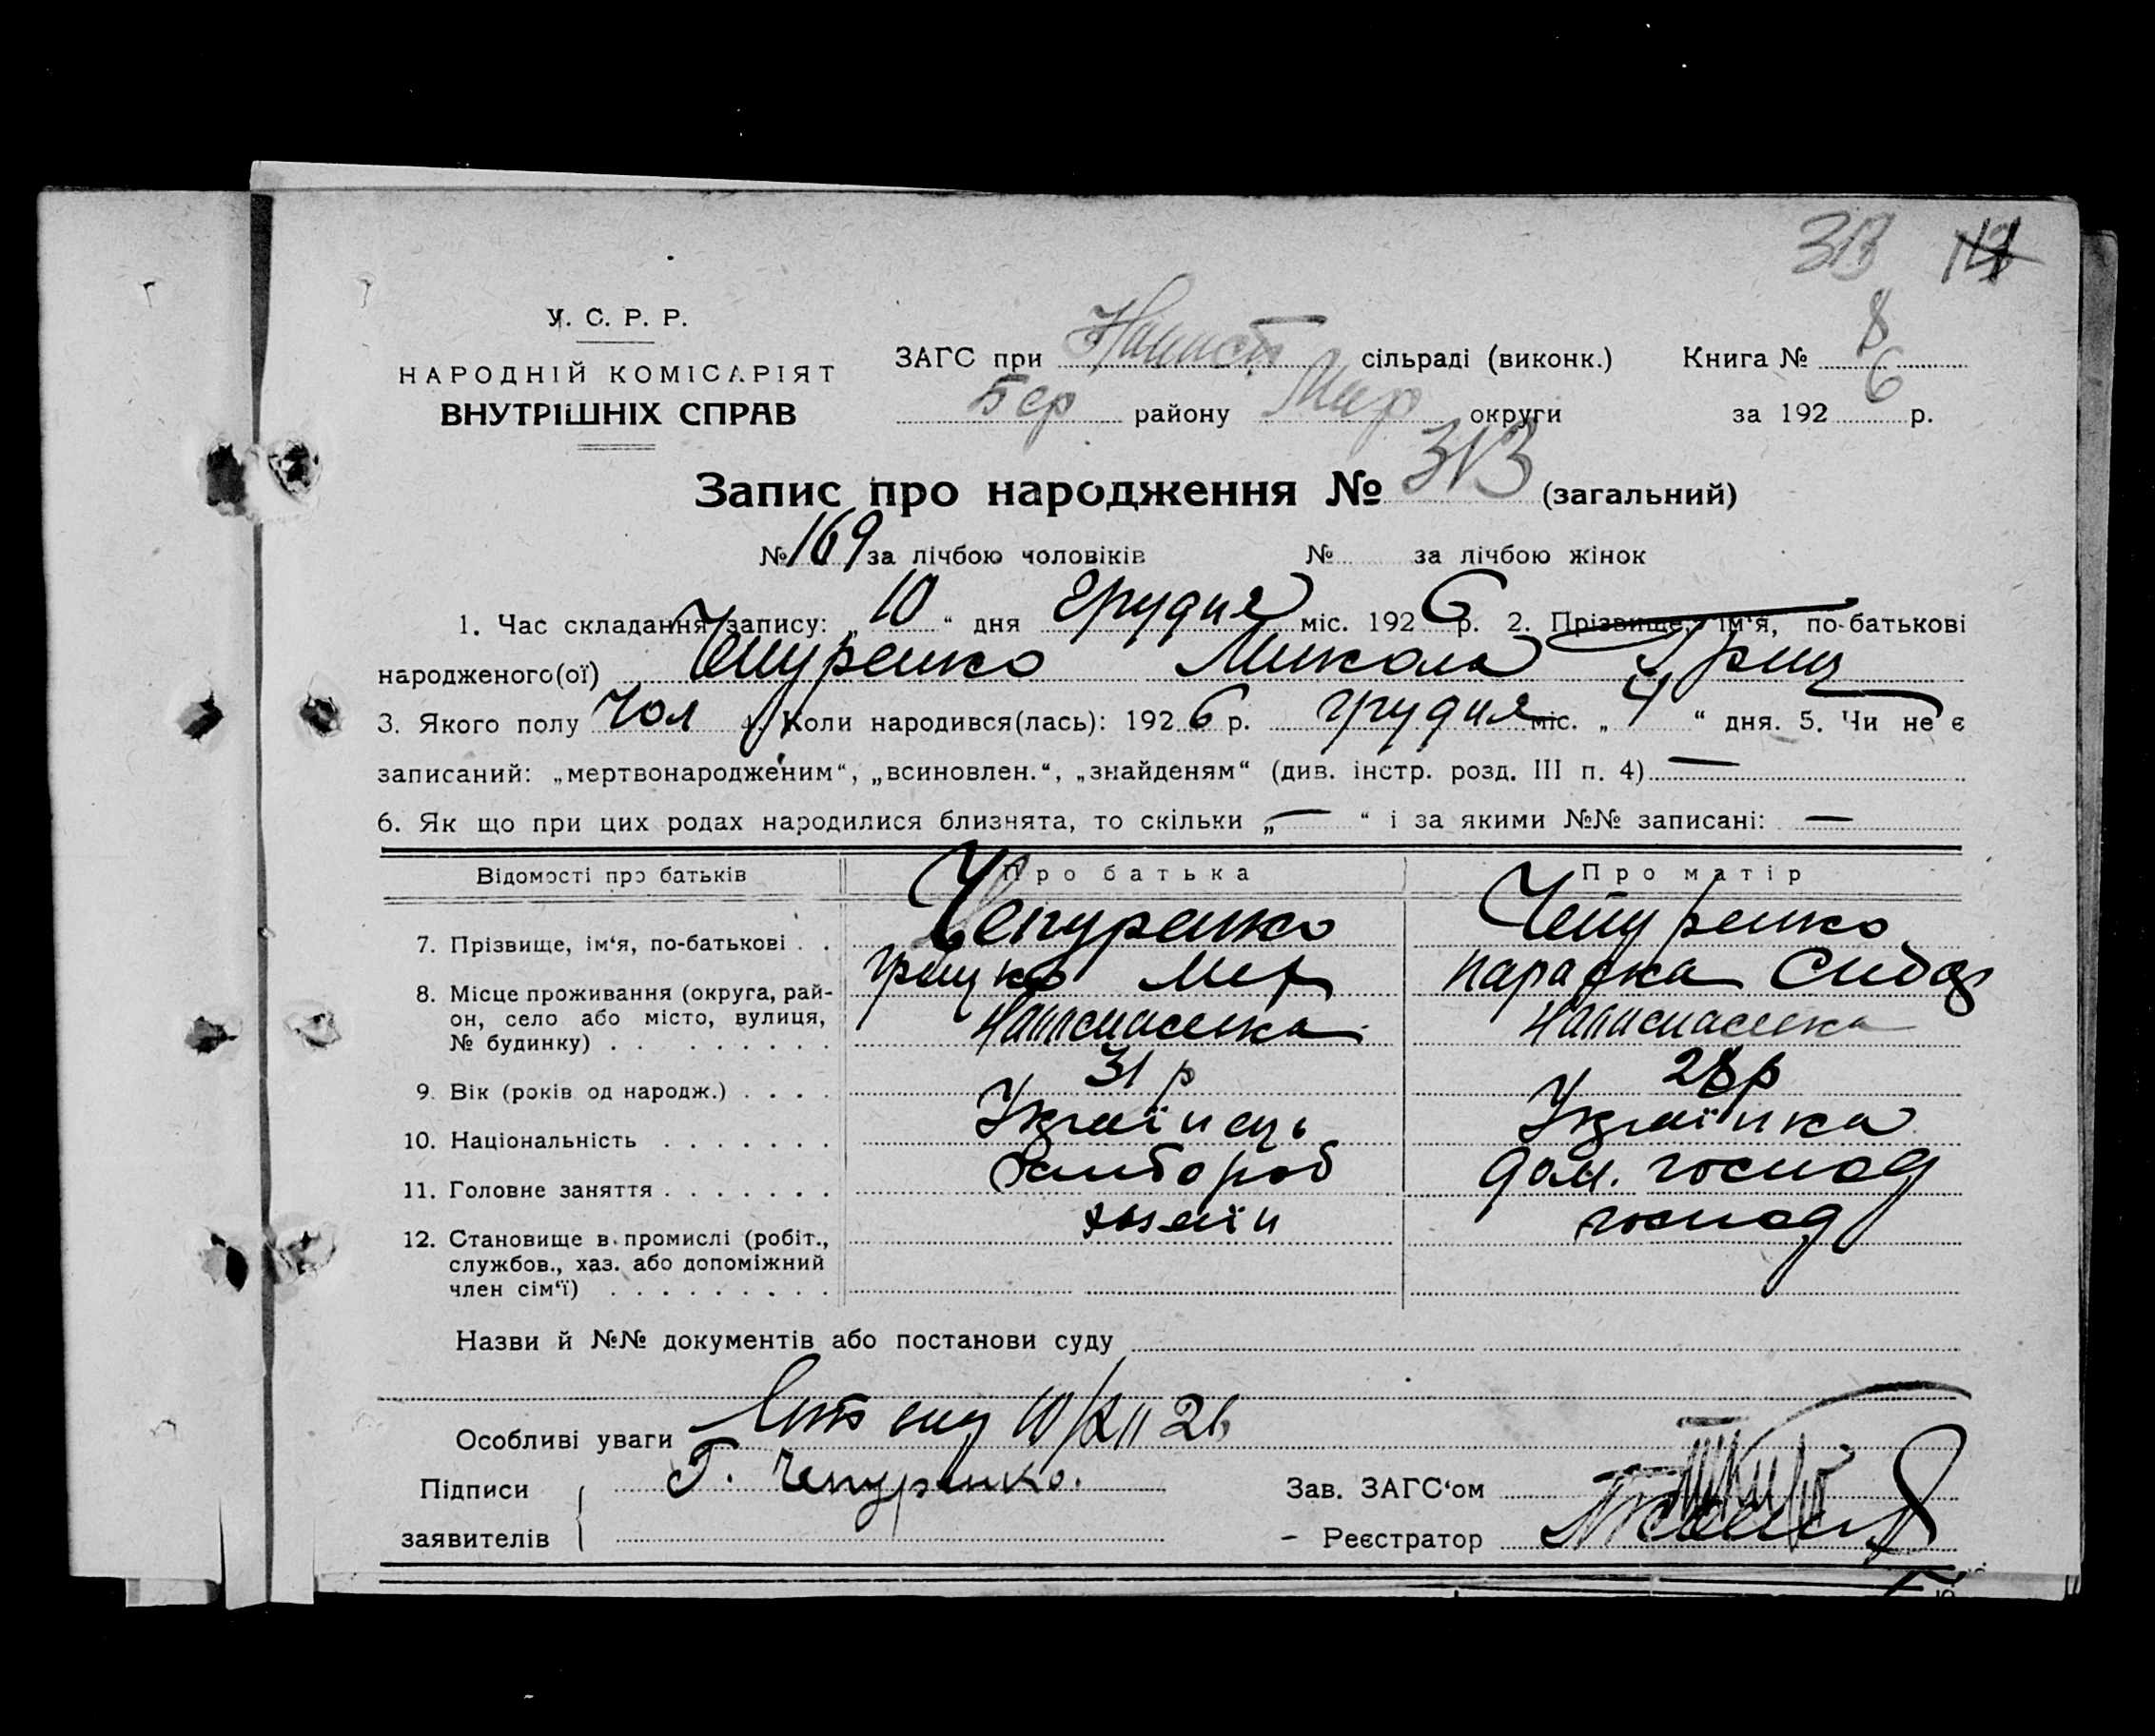 313
У. С. Р. Р.
НАРОДНІЙ КОМІСАРІЯТ
ВНУТРІШНІХ СПРАВ
ЗАГС при сільраді (виконк.) Книга № 8
Бер району Мир округи за 1926 р.
Запис про народження № 313 (загальний)
№ 169 за лічбою чоловіків № за лічбою жінок
1. Час складання запису: „ 10 “ дня Грудня міс. 1926 р. 2. Прізвище, ім‘я, по-батькові
народженого(ої) Чепуренко Микола Гриц
3. Якого полу Чол 4. Коли народився(лась): 1926 р. грудня міс. „ 4 “ дня. 5. Чи не є
записаний: „мертвонародженим“, „всиновлен.“, „знайденям“ (див. інстр. розд. III п. 4) —
6. Як що при цих родах народилися близнята, то скільки „ — “ і за якими №№ записані: —
Відомості про батьків Про батька Про матір
7. Прізвище, ім‘я, по-батькові . . Чепуренко Чепуренко
Грицко Параска
8. Місце проживання (округа, рай-
он, село або місто, вулиця,
№ будинку) . . . . . . . . .
9. Вік (років од народж.) . . . . 31 р 28 р
10. Національність . . . . . . . Українець Українка
11. Головне заняття . . . . . . . дом. господ
12. Становище в промислі (робіт., хазяїн господ
службов., хаз. або допоміжний
член сім‘ї) . . . . . . . . .
Назви й №№ документів або постанови суду
Особливі уваги 10/XII 26
Підписи Г. Чепуренко. Зав. ЗАГС‘ом
заявителів – Реєстратор